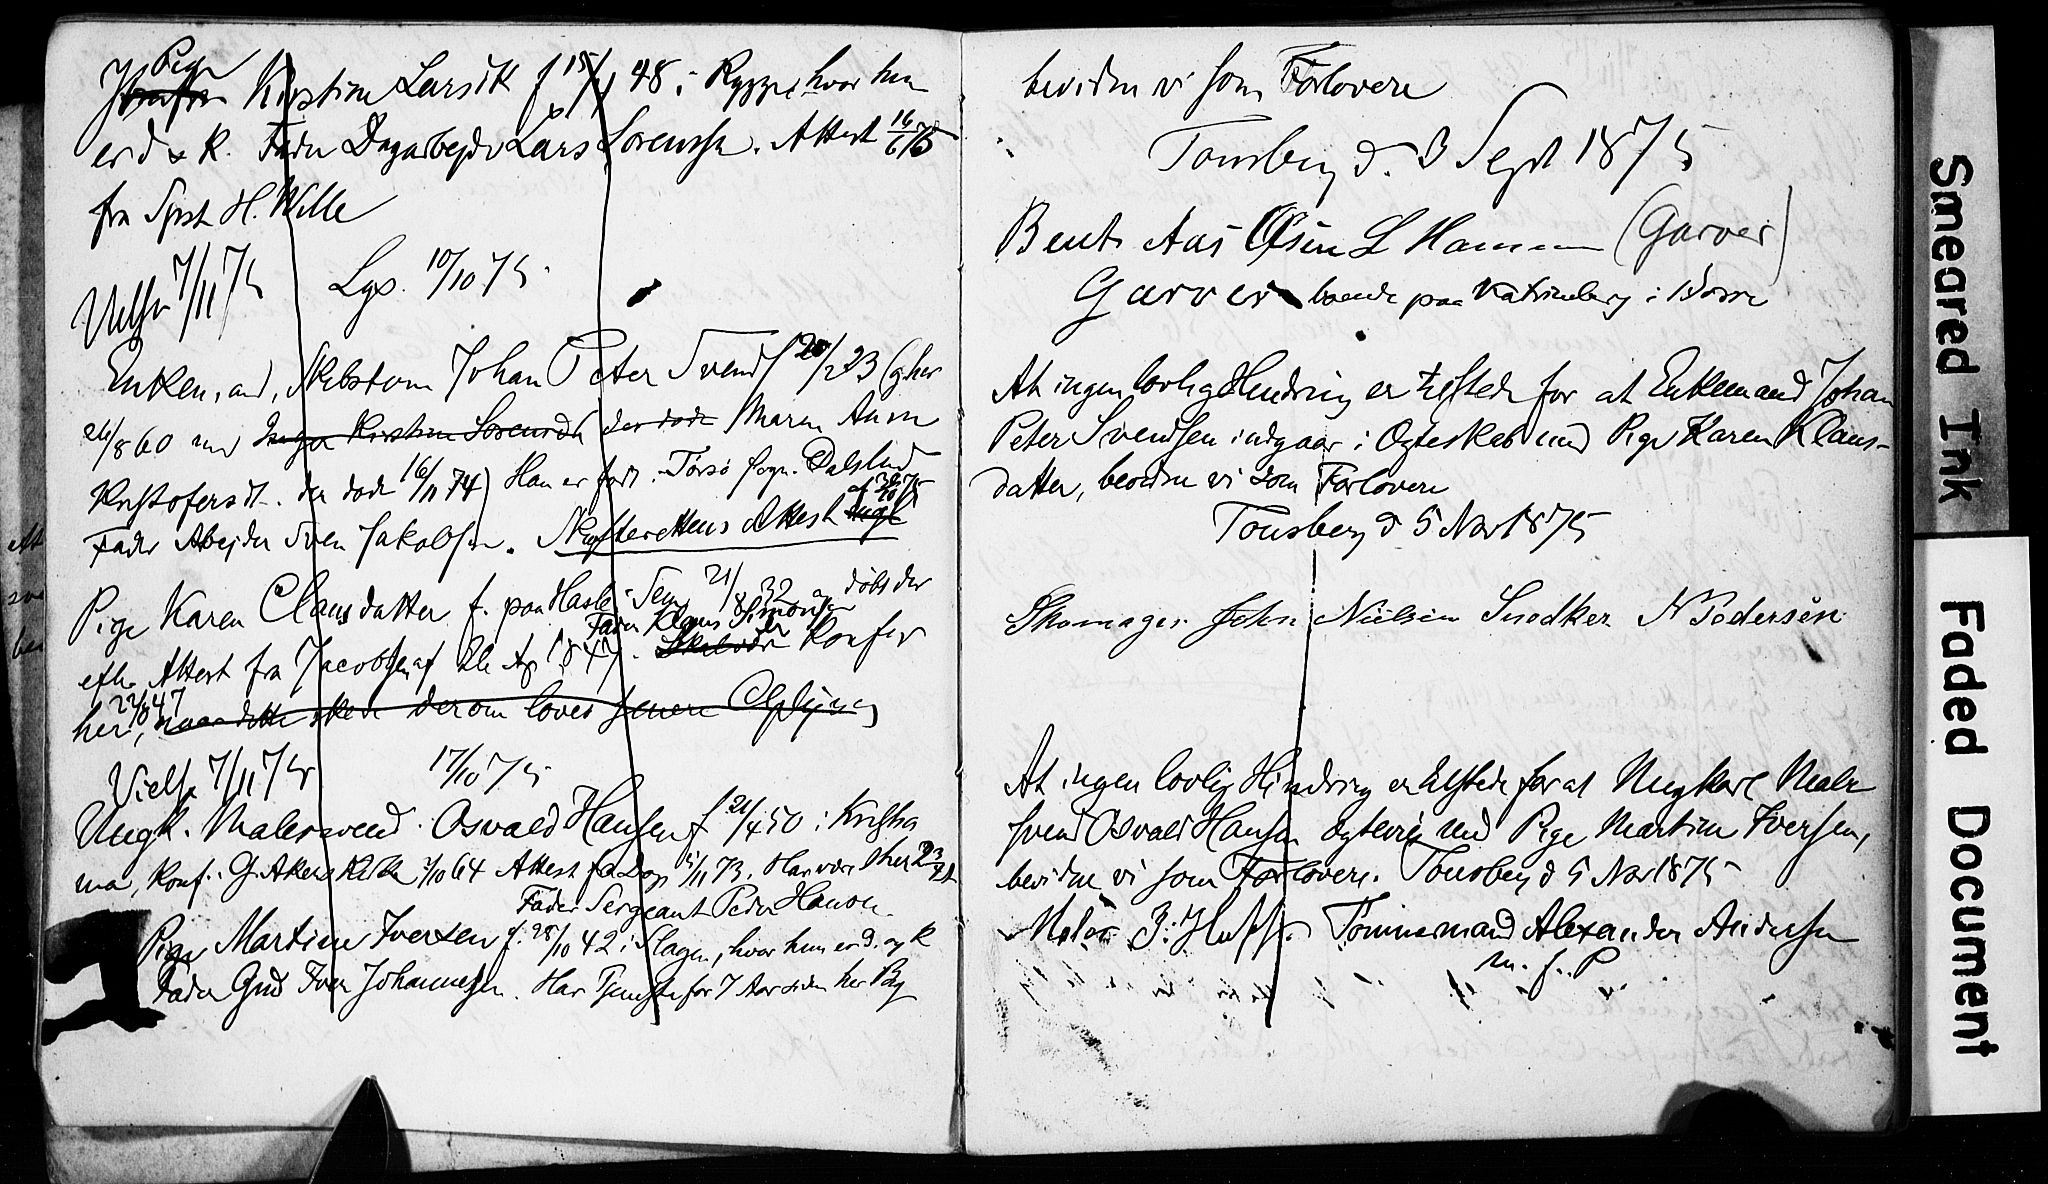 Pige
Kirstine Larsdt f 15/4 48 i Rygge, hvor hun
er d & k. Fader Dagarbejder Lars Sorenssen. Attest 16/6 75
fra Spr H. Wille
Vielse 7/11 75 Lys. 10/10 75
Enkemand, Johan Peter Svends 20/2 23 (g. her
26/8 60 med Inga Kirstine Sorensdt der dode Maren Anne
Kristofersdt. der dode 16/11 74) Han er fodt i Torso Sogn. Dalsland
Fader Abejder Sven Jakobsen. Skifterettens Attest
Pige Karen Clausdatter f. paa Hasle i Sem 21/8 32 og døbt der
Fader Klaus Simonsen
efter Attest fra Jacobsen af Konfir
her, 47 derom loves senere Oplysning
Vielse 7/11 75 17/10 75
Ungk. Malersvend Osvald Hansen f 21/4 50 i Kristia
nia, Konf. i G. Akers Kirke 2/10 64 Attest fra 73. Han være her
Fader Sergeant Peder Hanson.
Pige Martine Iversen f. 28/10 42 i Slagen, hvor hun er d. og k
Fader Gmd Iver Johannesen. Har Tjeneste for 7 Aar siden her By
bevidne vi som Forlovere
Tonsberg d. 3 Sept 1875
Bent Aas Olsen L Hamm (Garver)
Garver boende paa Katrineberg i Borre
At ingen lovlig Hindring er tilstede for at Enkemand Johan
Peter Svendsen indgaar i Ægteskab med Pige Karen Klaus-
datter, bevidne vi som Forlovere
Tonsberg d 5 Nov 1875
Skomager John Nielsen Snedker N Pedersen
At ingen lovlig Hindring er tilstede for at Ungkarl Maler
svend Osvald Hansen ægtevies med Pige Martine Iversen,
bevidne vi som Forlovere. Tonsberg d 5 Nov 1875
Maler Tömmermand Alexander Andersen
m. f. P.
Smeared Ink
Faded Document